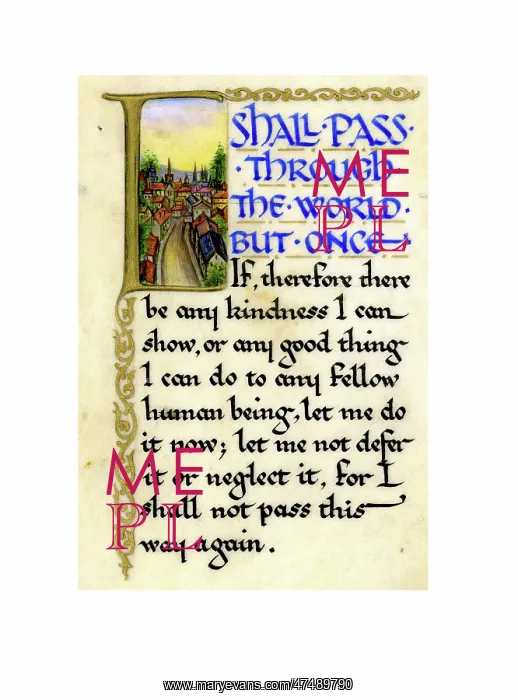 I SHALL·PASS·
·THROUGH
THE·WORLD·
BUT·ONCE
If, therefore there
be any kindness I can
show, or any good thing
I can do to any fellow
human being, let me do
it now; let me not defer
it or neglect it, for I
shall not pass this
way again.
ME
PL
ME
PL
www.maryevans.com/47489790